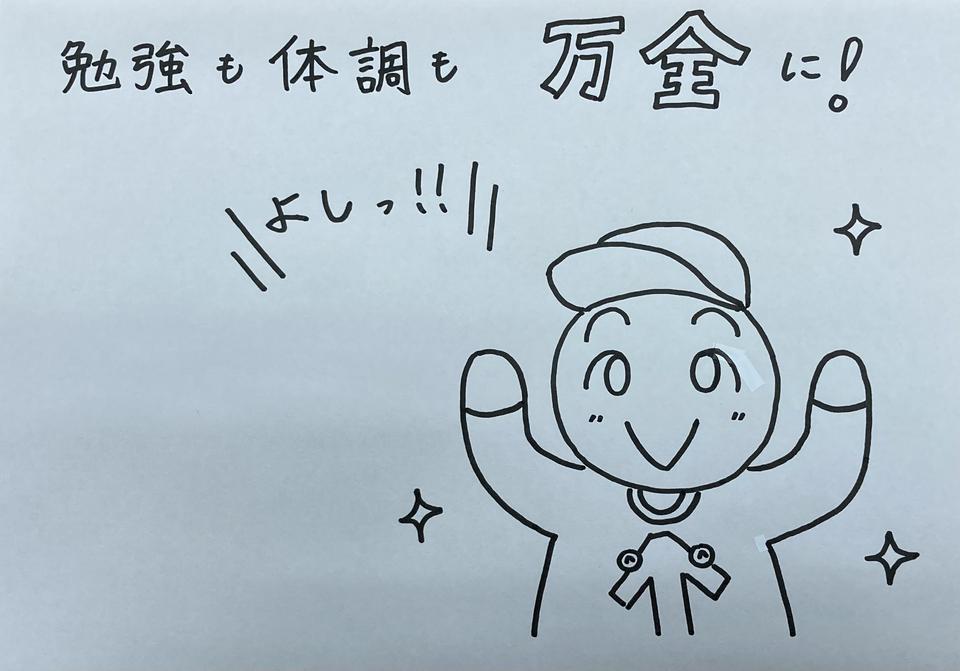 勉強も体調も万全に!
よしっ!!